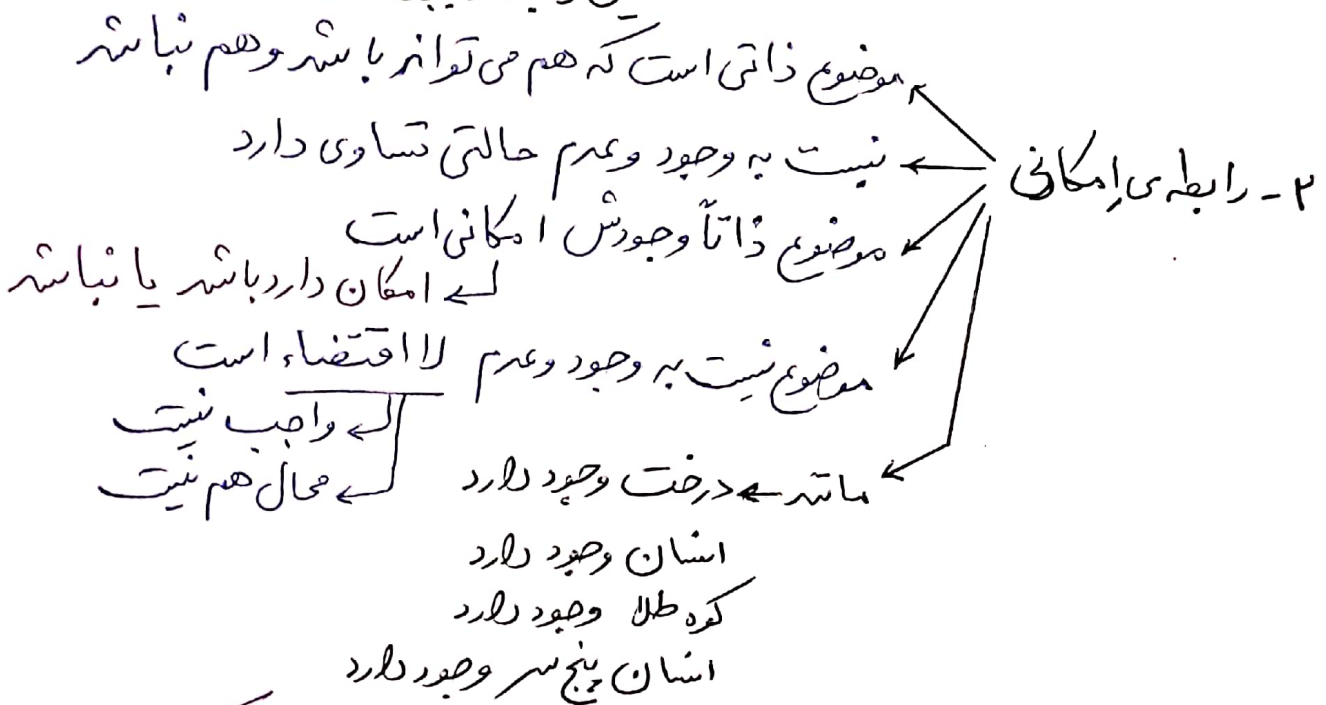 موضوع ذاتی است که هم می تواند باشد و هم نباشد
۲- رابطه ی اِمکانی
نسبت به وجود و عدم حالتی تساوی دارد
موضوع ذاتاً وجودش امکانی است
امکان دارد باشد یا نباشد
موضوع نسبت به وجود و عدم لا اقتضاء است
واجب نیست
محال هم نیست
مانند درخت وجود دارد
انسان وجود دارد
کوه طلا وجود دارد
انسان پنج سر وجود دارد